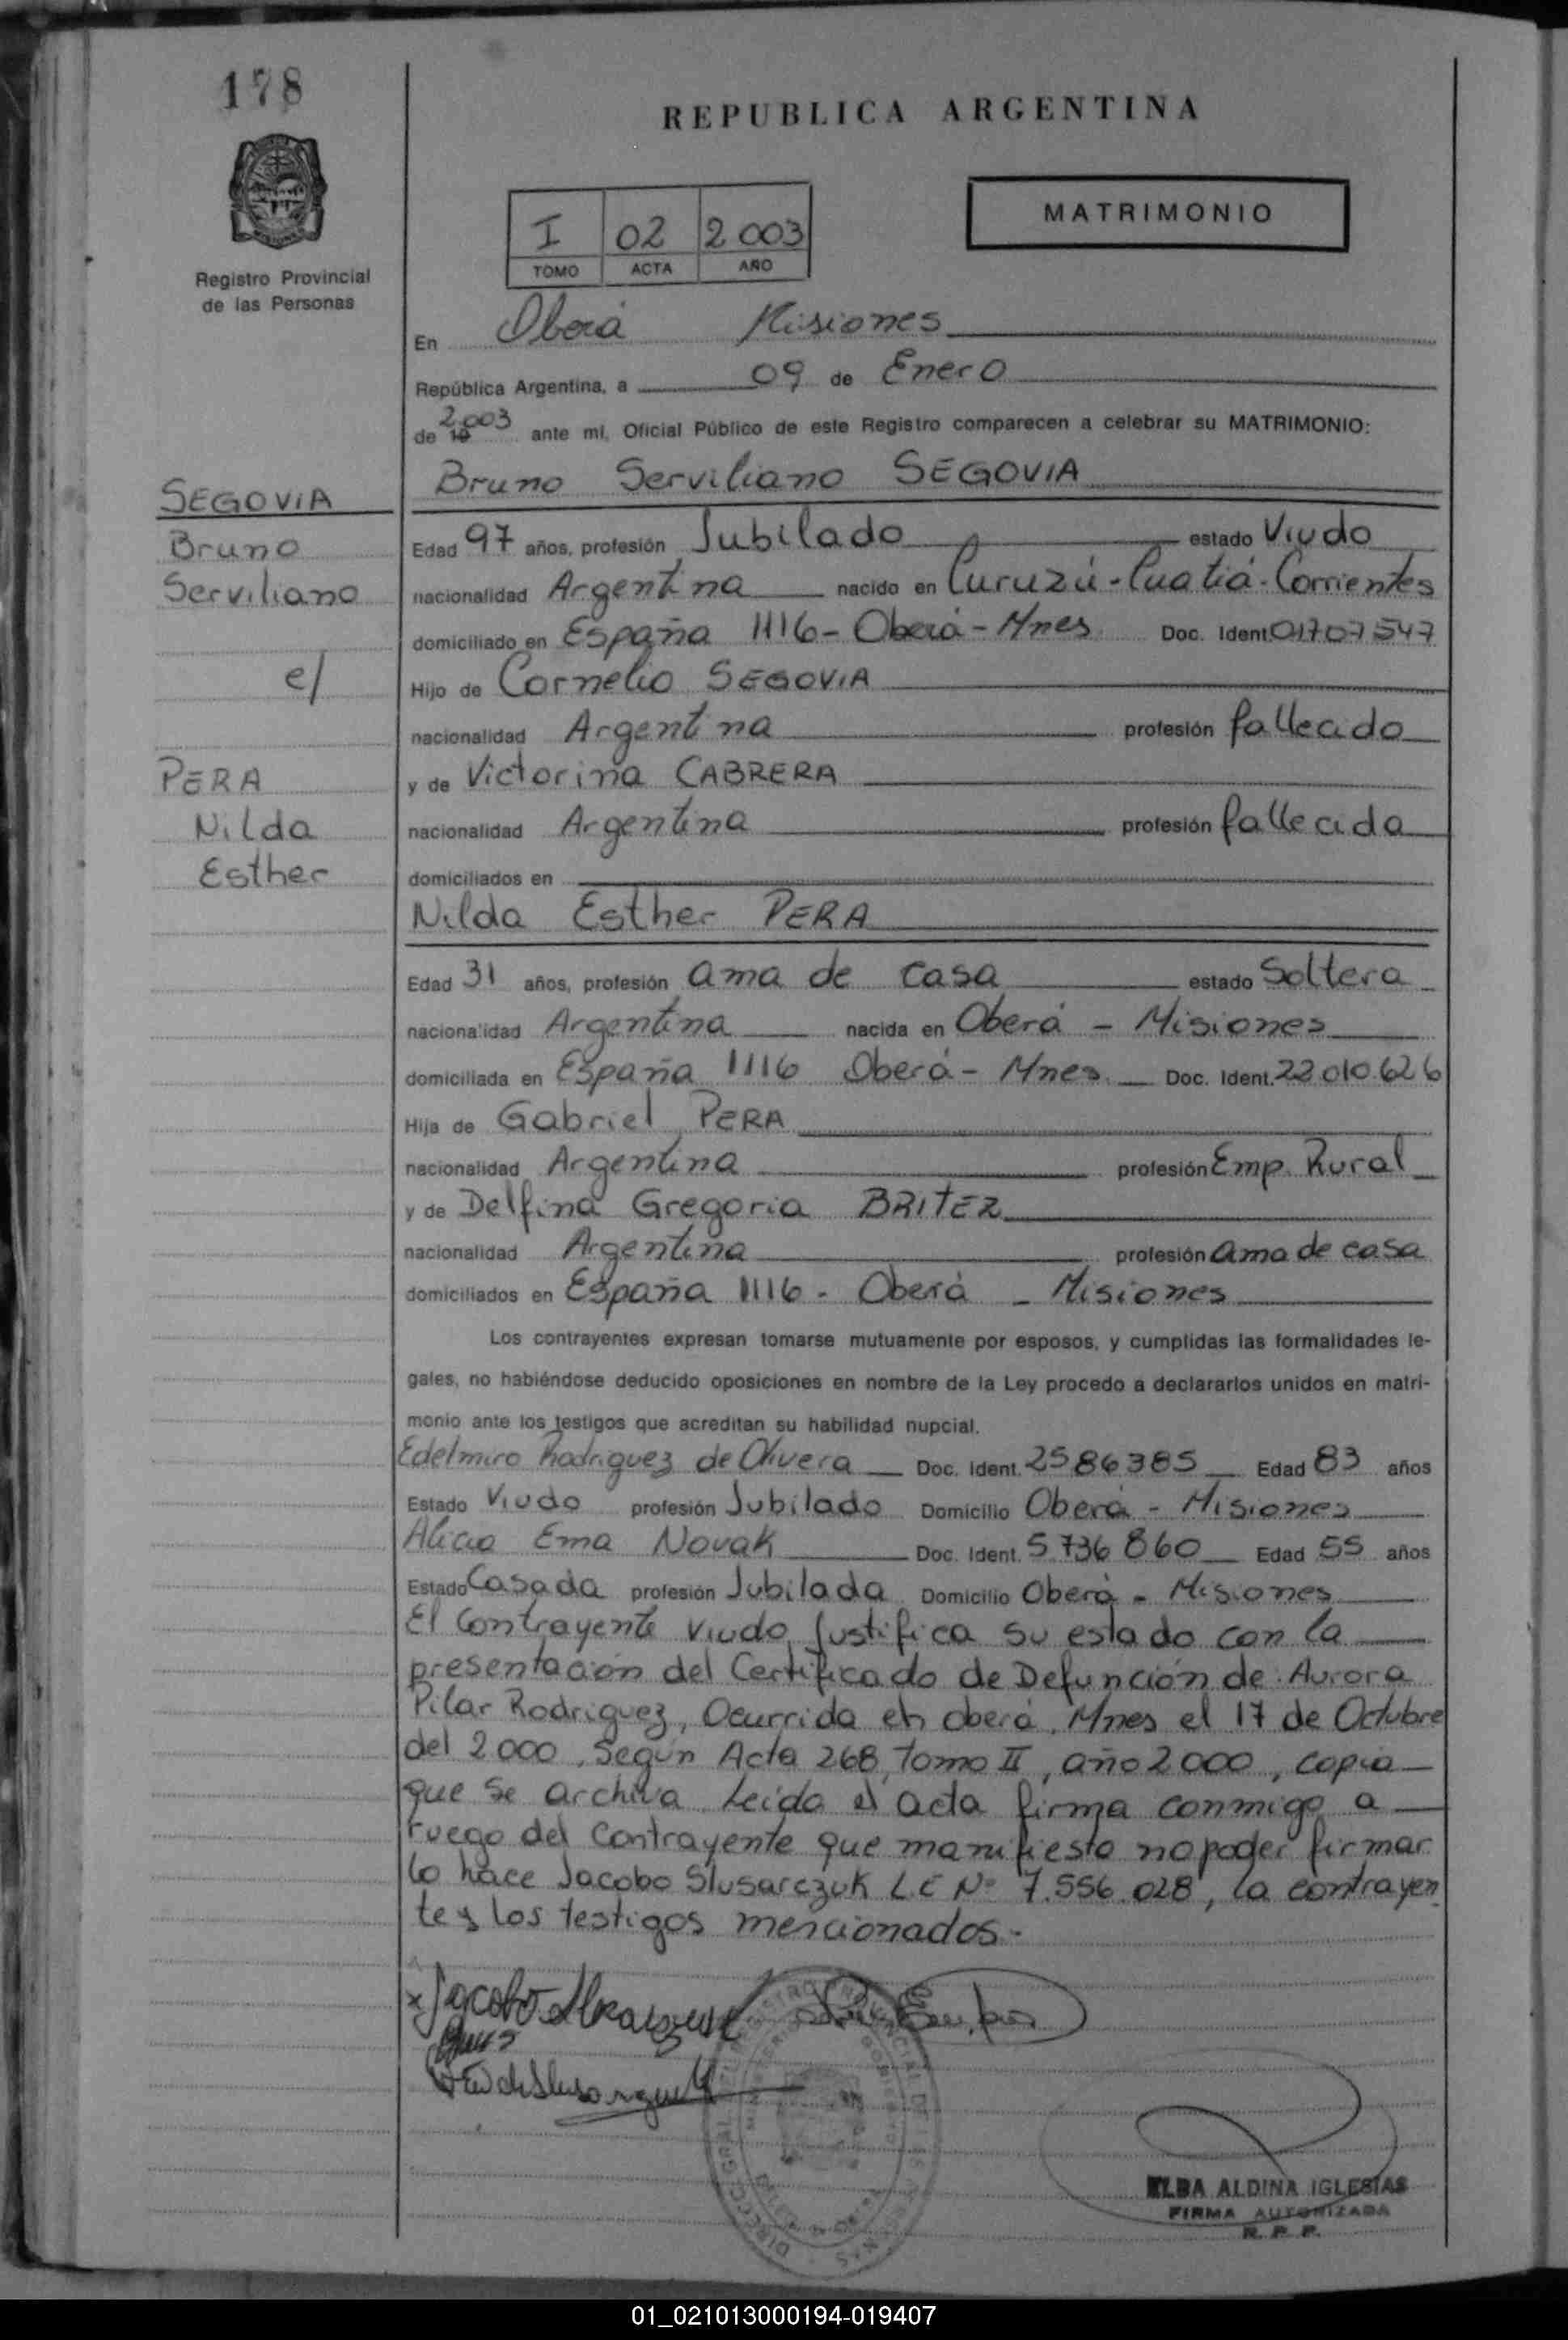 178
REPUBLICA ARGENTINA
Registro Provincial
de las Personas
I 02 2003
TOMO ACTA AÑO
MATRIMONIO
En Oberá Misiones
República Argentina, a 09 de Enero
de 19 2003 ante mí, Oficial Público de este Registro comparecen a celebrar su MATRIMONIO:
Bruno Serviliano SEGOVIA
SEGOVIA
Bruno
Serviliano
e/
PERA
Nilda
Esther
Edad 97 años, profesión Jubilado estado Viudo
nacionalidad Argentina nacido en Curuzú-Cuatiá-Corrientes
domiciliado en España 1116 - Oberá - Mnes Doc. Ident 01707547
Hijo de Cornelio SEGOVIA
nacionalidad Argentina profesión fallecido
y de Victorina CABRERA
nacionalidad Argentina profesión fallecida
domiciliados en
Nilda Esther PERA
Edad 31 años, profesión ama de casa estado Soltera
nacionalidad Argentina nacida en Oberá - Misiones
domiciliada en España 1116 Oberá - Mnes. Doc. Ident. 22.010.626
Hija de Gabriel PERA
nacionalidad Argentina profesión Emp. Rural
y de Delfina Gregoria BRITEZ
nacionalidad Argentina profesión ama de casa
domiciliados en España 1116 - Oberá - Misiones
Los contrayentes expresan tomarse mutuamente por esposos, y cumplidas las formalidades le-
gales, no habiéndose deducido oposiciones en nombre de la Ley procedo a declararlos unidos en matri-
monio ante los testigos que acreditan su habilidad nupcial.
Edelmiro Rodriguez de Olivera Doc. Ident. 2586385 Edad 83 años
Estado Viudo profesión Jubilado Domicilio Oberá - Misiones
Alicia Ema Novak Doc. Ident. 5.736.860 Edad 55 años
Estado Casada profesión Jubilada Domicilio Oberá - Misiones
El Contrayente viudo, justifica su estado con la
presentación del Certificado de Defunción de Aurora
Pilar Rodriguez, Ocurrida en oberá, Mnes el 17 de Octubre
del 2000, Según Acta 268, Tomo II, año 2000, copia
que se archiva. Leída el acta firma conmigo a
ruego del contrayente que manifiesta no poder firmar
lo hace Jacobo Slusarczuk L.E Nº 7.556.028, la contrayen
te y los testigos mencionados.-
ELBA ALDINA IGLESIAS
FIRMA AUTORIZADA
R. P. P.
01_021013000194-019407